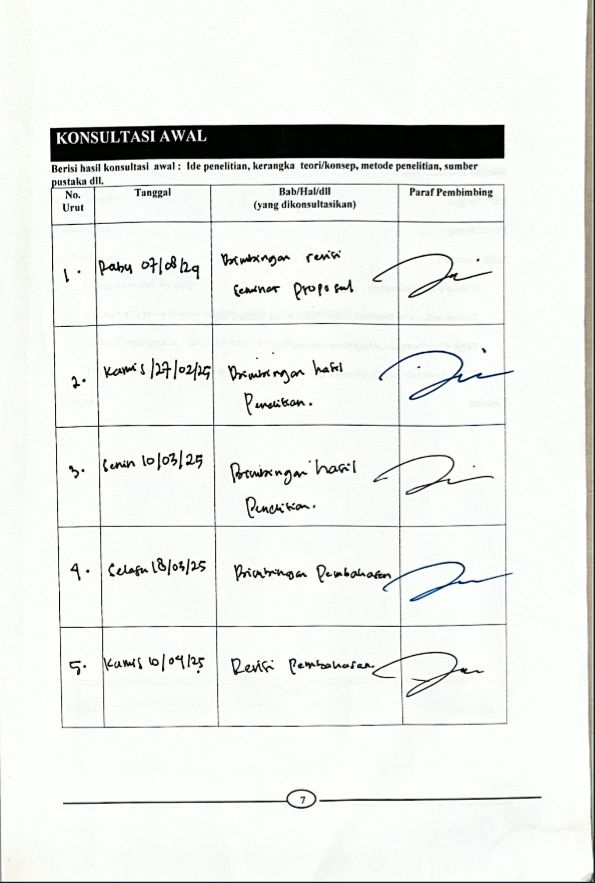 KONSULTASI AWAL
Berisi hasil konsultasi awal : Ide penelitian, kerangka teori/konsep, metode penelitian, sumber
pustaka dll.
No. Urut Tanggal Bab/Hal/dll (yang dikonsultasikan) Paraf Pembimbing
1. Rabu 07/08/24 Bimbingan revisi
seminar proposal
2. Kamis /27/02/25 Bimbingan hasil
Penelitian.
3. Senin 10/03/25 Bimbingan hasil
Penelitian.
4. Selasa 18/03/25 Bimbingan Pembahasan
5. Kamis 10/04/25 Revisi Pembahasan.
7